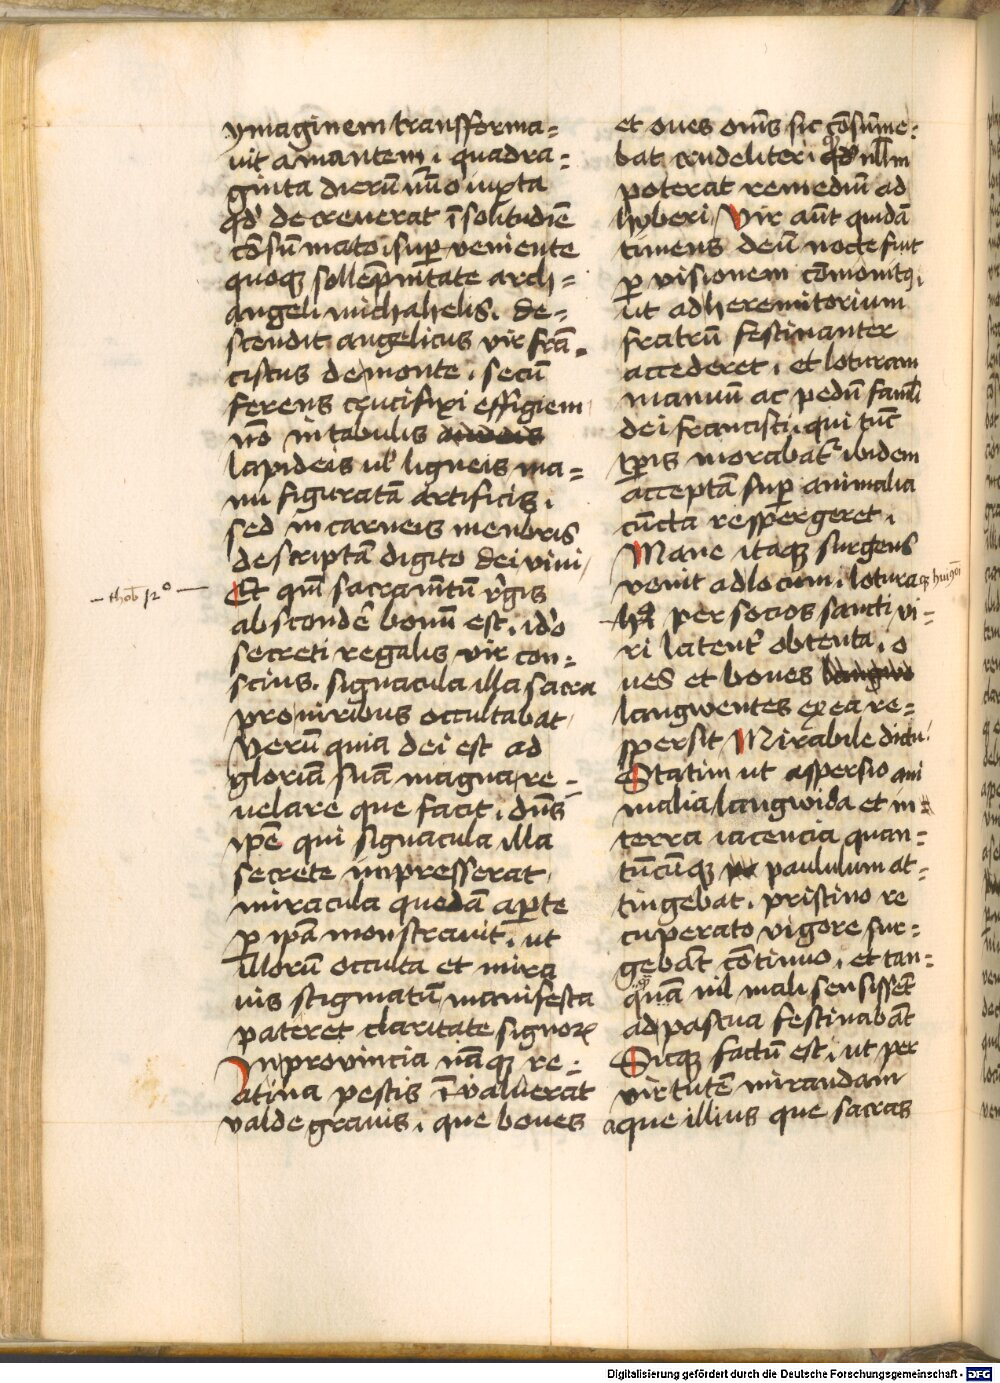 ymaginem transforma=
uit amantem. quadra=
ginta dierū nūo iuxta
qd' decreuerat ī solitudīe
cōsūmato. sup̱ueniente
quoqȝ sollēpnitate arch=
angeli michahelis. de=
scendit angelicus vir frā=
ciscus de monte. secū
ferens crucifixi effigiem
nō in tabulis
lapideis ul' ligneis ma=
nu figuratā artificis.
sed in carneis menbris
descriptā digito dei viui
Et qm̄ sacramn̄tū r̄gis
abscondē bonū est. id'o
secreti regalis vir con=
scius. signacula illa sacra
pro viribus occultabat
Verū quia dei est ad
gloriā suā magna re=
uelare que facit. dn̄s
ip̄e qui signacula illa
secrete impresserat
miracula quedā aꝑte
ꝑ ip̄a monstrauit. ut
illorū occulta et mira
uis stigmatū manifesta
pateret claritate signoꝝ
In prouincia nāqȝ re=
atina pestis īualuerat
valde grauis. que boues
– thob 12° –
et oues om̄s sic cōsūme=
bat crudeliter. qd' nll'm
poterat remediū ad
hyberi. Vir aūt quidā
timens deū nocte fuit
ꝑ visionem cōmonitꝰ.
ut ad heremitorium
fratrū festinanter
accederet. et loturam
manuū ac pedū famli
dei francisci. qui tūc
tꝑis morabat' ibidem
acceptā suꝑ animalia
cūcta respergeret.
Mane itaqȝ surgens
venit ad locum. lotura
per socios sancti vi=
ri latent' obtenta. o
ues et boues
langwentes ex ea re=
spersit Mirabile dictu
Statim ut aspersio ani
malia langwida et in
terra iacencia quan=
tūcūqȝ paululum at=
tingebat. pristino re
cuperato vigore sur=
gebāt cōtinuo. et tan=
quā nil mali sensissēt
ad pascua festinabāt
Sicqȝ factū est. ut per
virtutē mirandam
aque illius que sacras
Digitalisierung gefördert durch die Deutsche Forschungsgemeinschaft - DFG